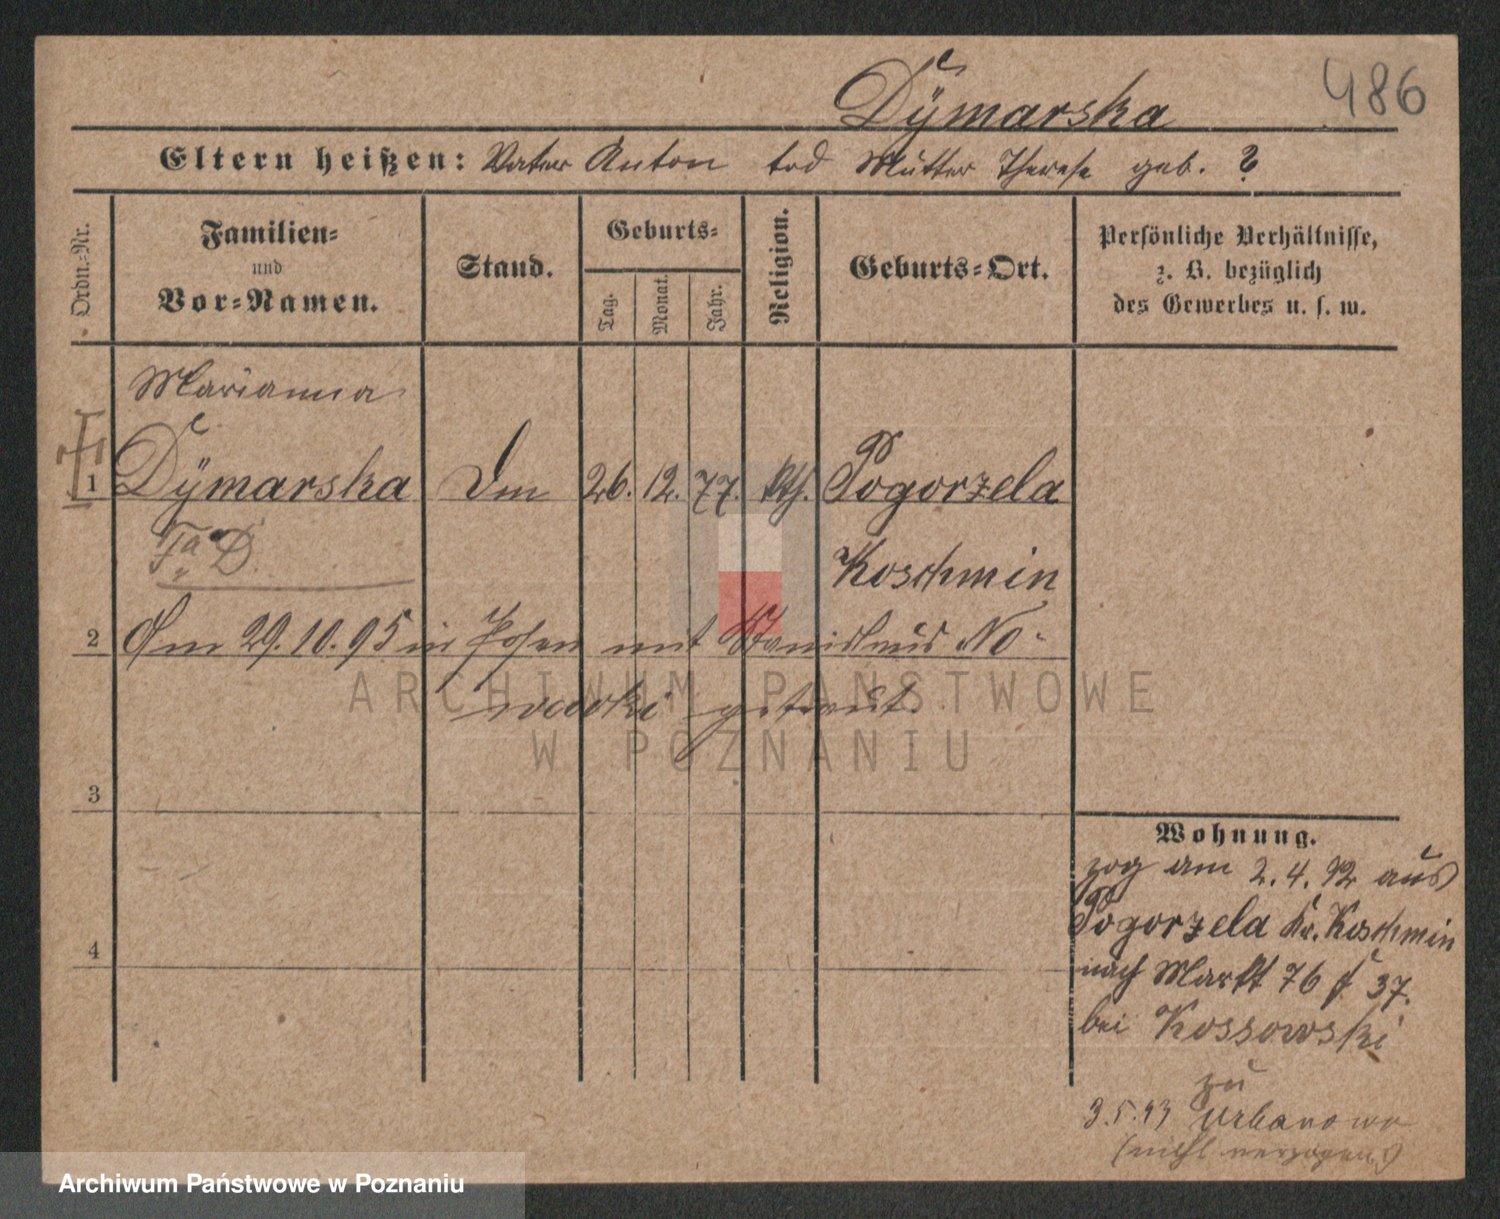 486
Dÿmarska
Eltern heißen: Vater Anton tod Mutter Therese geb. ?
Ordn.-Nr.
Familien-
und
Vor-Namen.
Stand.
Geburts-
Tag.
Monat.
Jahr.
Religion.
Geburts-Ort.
Persönliche Verhältnisse,
z. B. bezüglich
des Gewerbes u. s. w.
Marianna
1 Dÿmarska 26. 12. 77. kth. Pogorzela
Koschmin
2 Am 29.10.95 in Posen mit Stanislaus No-
wacki getraut.
3
4
Wohnung.
zog am 2.4.92 aus
Pogorzela Kr. Koschmin
nach Markt 76 37.
bei Kossowski
zu
3.5.93 Urbanowo
(nicht verzogen)
ARCHIWUM PAŃSTWOWE
W POZNANIU
Archiwum Państwowe w Poznaniu